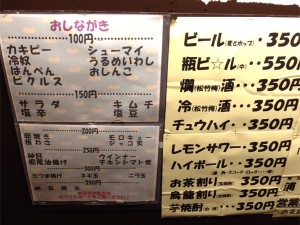 おしながき
100円
カキピー シューマイ
冷奴 うるめいわし
はんぺん おしんこ
ピクルス
150円
サラダ キムチ
塩辛 塩豆
200円
モロキュー
板わさ ジャコ天
250円
ウインナー
栃尾油揚げ チキントマト煮
300円
ネギ玉 ニラ玉
350円
ビール(麦とホップ)・350円
瓶ビール(中)・・550円
燗(松竹梅)酒・・・350円
冷(松竹梅)酒・・・350円
チュウハイ・・・350円
レモンサワー・・・350円
ハイボール・・・350円
お茶割り 350円
烏龍割り 350円
芋焼酎 350円
営業